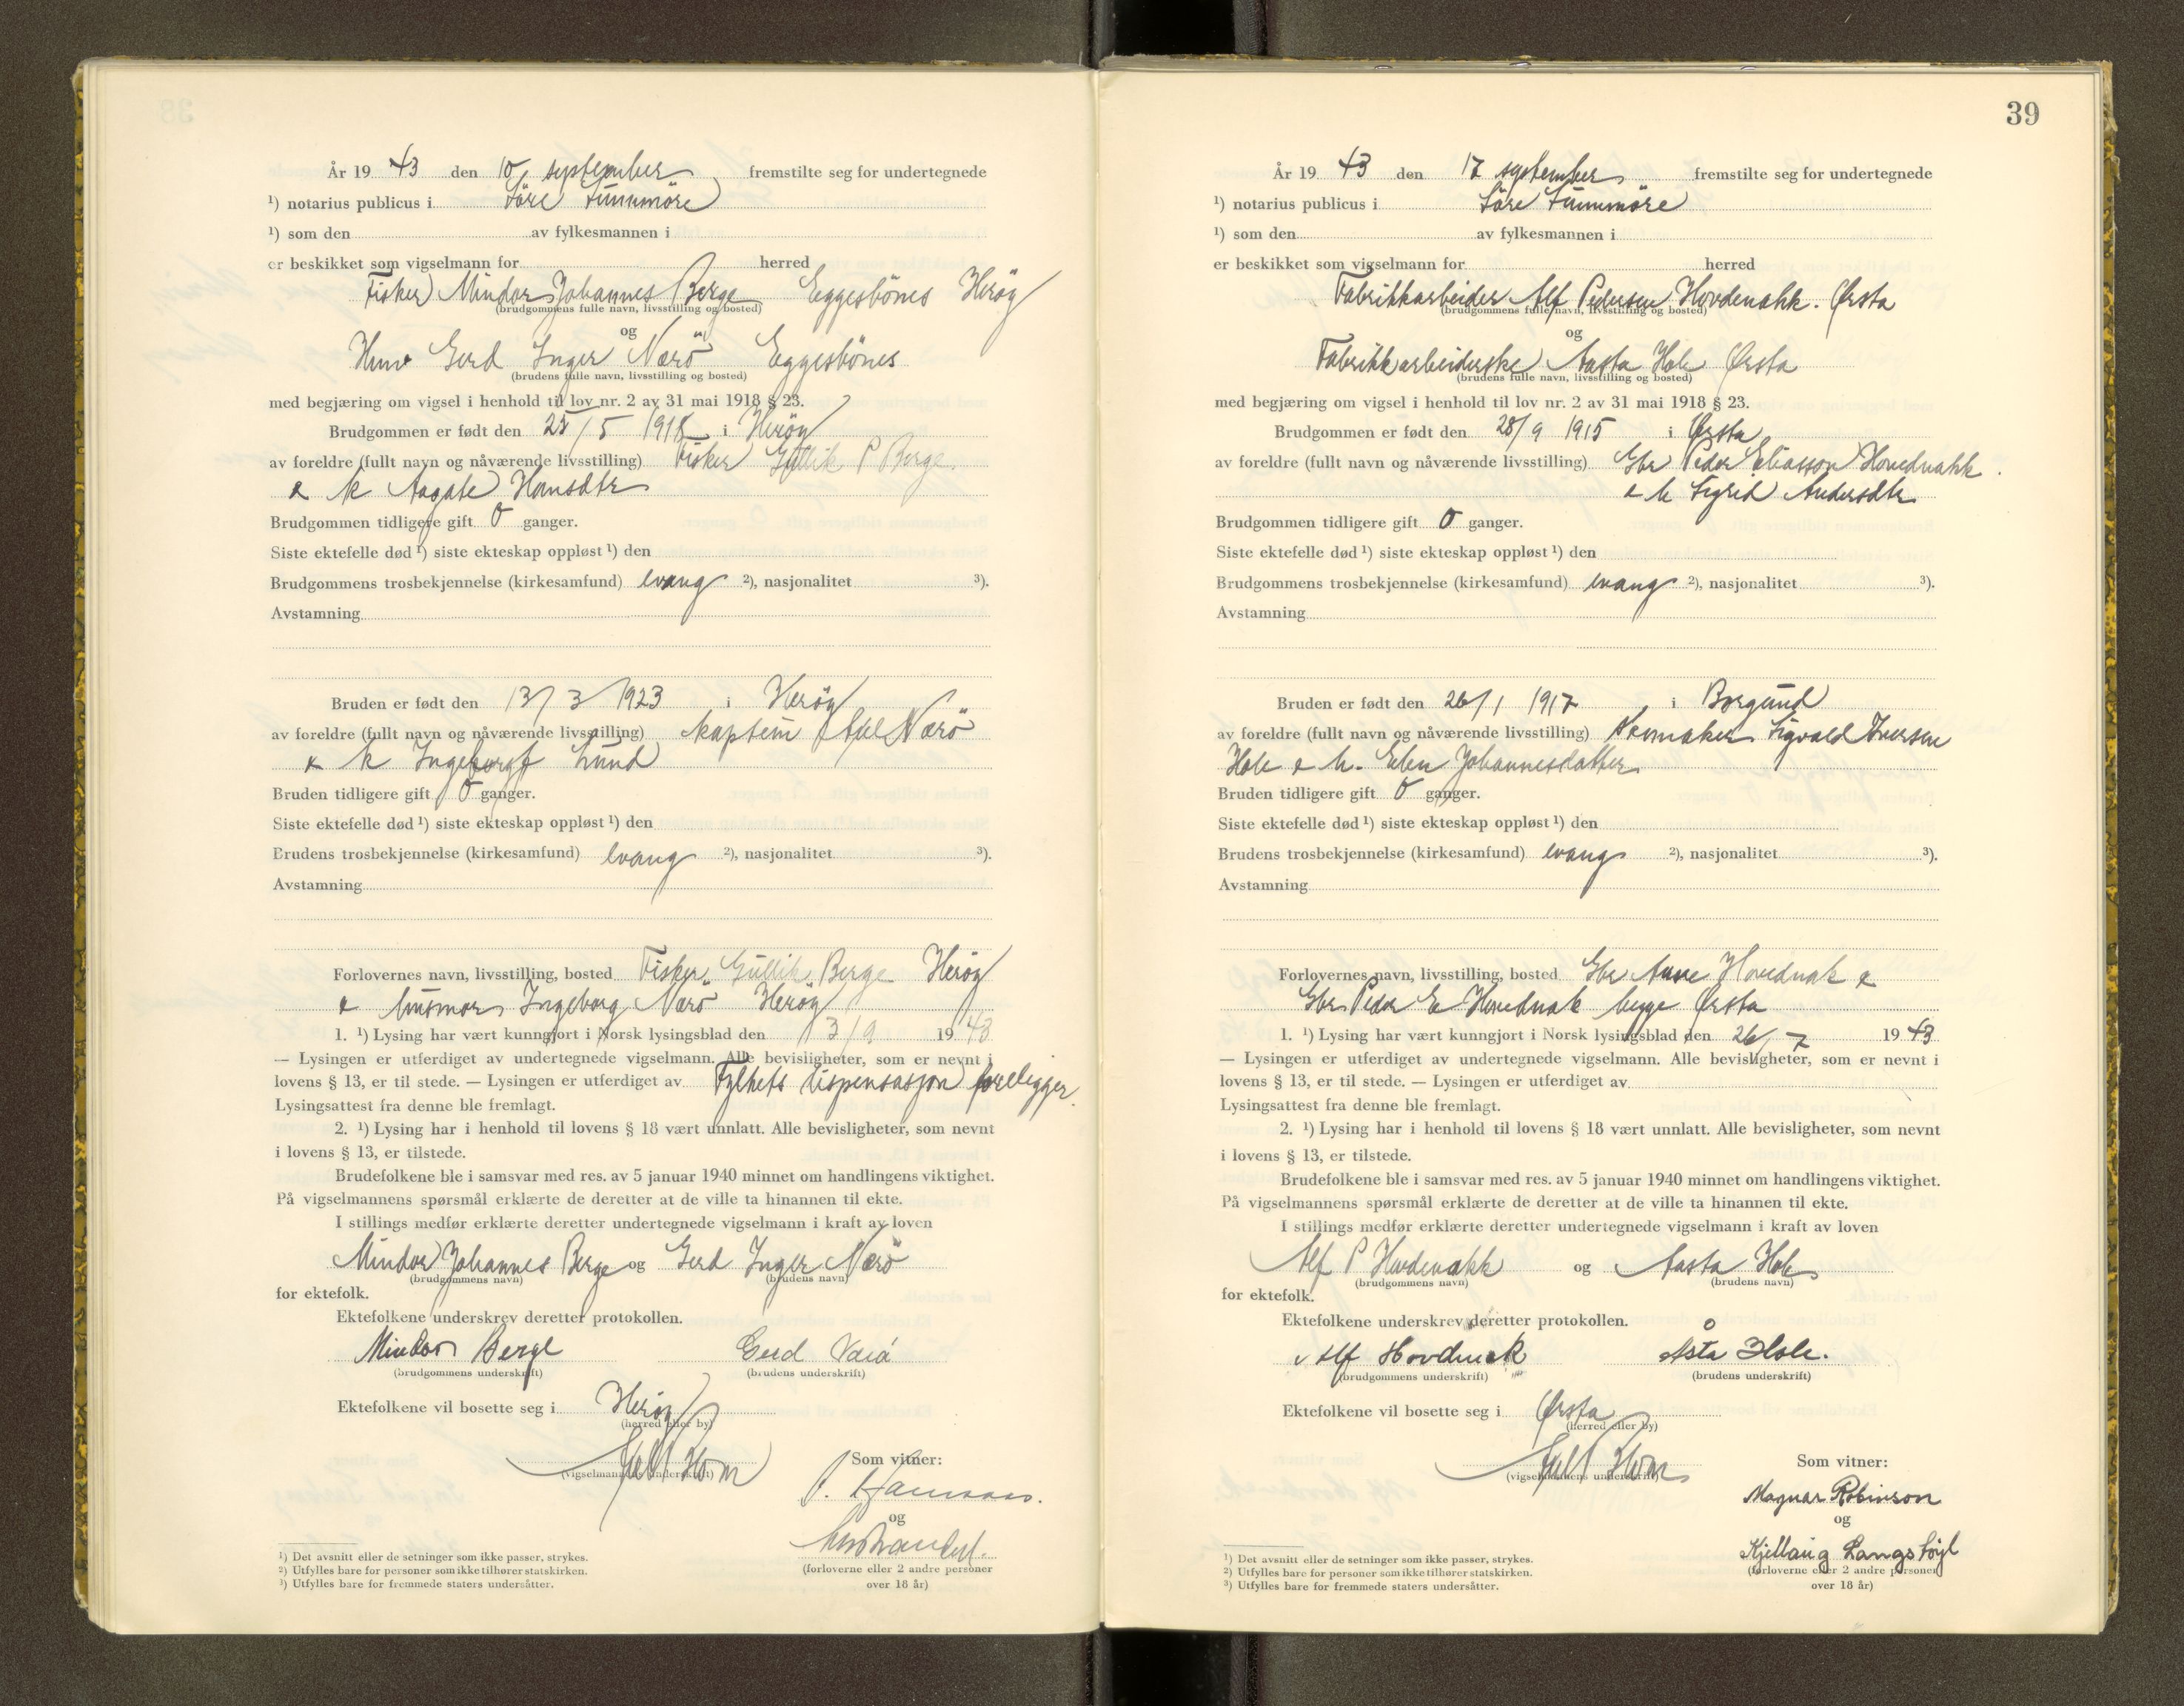 År 19 43 den 10 september fremstilte seg for undertegnede
¹) notarius publicus i Söre Sunnmöre
¹) som den av fylkesmannen i
er beskikket som vigselmann for herred
Fisker Mindor Johannes Berge Eggesbönes Heröy
(brudgommens fulle navn, livsstilling og bosted)
og
Gerd Inger Nærö Eggesbönes
(brudens fulle navn, livsstilling og bosted)
med begjæring om vigsel i henhold til lov nr. 2 av 31 mai 1918 § 23.
Brudgommen er født den /5 1918 i Heröy
av foreldre (fullt navn og nåværende livsstilling) Fisker Gullik P Berge
& k Aagate Hansdtr
Brudgommen tidligere gift 0 ganger.
Siste ektefelle død ¹) siste ekteskap oppløst ¹) den
Brudgommens trosbekjennelse (kirkesamfund) evang ²), nasjonalitet ³).
Avstamning
Bruden er født den 13/3 1923 i Heröy
av foreldre (fullt navn og nåværende livsstilling) kaptein Nærö
& k Ingeborg Lund
Bruden tidligere gift 0 ganger.
Siste ektefelle død ¹) siste ekteskap oppløst ¹) den
Brudens trosbekjennelse (kirkesamfund) evang ²), nasjonalitet ³).
Avstamning
Forlovernes navn, livsstilling, bosted Fisker Gullik Berge Heröy
& husmor Ingeborg Nærö Heröy
1. ¹) Lysing har vært kunngjort i Norsk lysingsblad den 3/9 1943
— Lysingen er utferdiget av undertegnede vigselmann. Alle bevisligheter, som er nevnt i
lovens § 13, er til stede. — Lysingen er utferdiget av Fylkets dispensasjon foreligger.
Lysingsattest fra denne ble fremlagt.
2. ¹) Lysing har i henhold til lovens § 18 vært unnlatt. Alle bevisligheter, som nevnt
i lovens § 13, er tilstede.
Brudefolkene ble i samsvar med res. av 5 januar 1940 minnet om handlingens viktighet.
På vigselmannens spørsmål erklærte de deretter at de ville ta hinannen til ekte.
I stillings medfør erklærte deretter undertegnede vigselmann i kraft av loven
Mindor Johannes Berge og Gerd Inger Nærö
(brudgommens navn) (brudens navn)
for ektefolk.
Ektefolkene underskrev deretter protokollen.
Mindor Berge Gerd Nærö
(brudgommens underskrift) (brudens underskrift)
Ektefolkene vil bosette seg i Heröy
(herred eller by)
(vigselmannens underskrift)
Som vitner:
og
(forloverne eller 2 andre personer
over 18 år)
¹) Det avsnitt eller de setninger som ikke passer, strykes.
²) Utfylles bare for personer som ikke tilhører statskirken.
³) Utfylles bare for fremmede staters undersåtter.
39
År 19 43 den 17 september fremstilte seg for undertegnede
¹) notarius publicus i Söre Sunnmöre
¹) som den av fylkesmannen i
er beskikket som vigselmann for herred
Fabrikkarbeider Alf Pedersen Hovdenakk. Ørsta
(brudgommens fulle navn, livsstilling og bosted)
og
Fabrikkarbeiderske Aasta Hole Ørsta
(brudens fulle navn, livsstilling og bosted)
med begjæring om vigsel i henhold til lov nr. 2 av 31 mai 1918 § 23.
Brudgommen er født den 28/9 1915 i Ørsta
av foreldre (fullt navn og nåværende livsstilling) Gbr Peder Eliasson Hovednakk.
& k Sigrid Andersdtr
Brudgommen tidligere gift 0 ganger.
Siste ektefelle død ¹) siste ekteskap oppløst ¹) den
Brudgommens trosbekjennelse (kirkesamfund) evang ²), nasjonalitet ³).
Avstamning
Bruden er født den 26/1 1917 i Borgund
av foreldre (fullt navn og nåværende livsstilling) Skomaker Sigvald Iversen
Hole & k. Elen Johannesdatter
Bruden tidligere gift 0 ganger.
Siste ektefelle død ¹) siste ekteskap oppløst ¹) den
Brudens trosbekjennelse (kirkesamfund) evang ²), nasjonalitet ³).
Avstamning
Forlovernes navn, livsstilling, bosted Gbr Hovednak &
Gbr Peder E Hovednak begge Ørsta
1. ¹) Lysing har vært kunngjort i Norsk lysingsblad den 26/7 1943
— Lysingen er utferdiget av undertegnede vigselmann. Alle bevisligheter, som er nevnt i
lovens § 13, er til stede. — Lysingen er utferdiget av
Lysingsattest fra denne ble fremlagt.
2. ¹) Lysing har i henhold til lovens § 18 vært unnlatt. Alle bevisligheter, som nevnt
i lovens § 13, er tilstede.
Brudefolkene ble i samsvar med res. av 5 januar 1940 minnet om handlingens viktighet.
På vigselmannens spørsmål erklærte de deretter at de ville ta hinannen til ekte.
I stillings medfør erklærte deretter undertegnede vigselmann i kraft av loven
Alf P Hovdenakk og Aasta Hole
(brudgommens navn) (brudens navn)
for ektefolk.
Ektefolkene underskrev deretter protokollen.
Alf Hovdenak Åsta Hole.
(brudgommens underskrift) (brudens underskrift)
Ektefolkene vil bosette seg i Ørsta
(herred eller by)
(vigselmannens underskrift)
Som vitner:
Magnar Robinson
og
Kjellaug Langstöyl
(forloverne eller 2 andre personer
over 18 år)
¹) Det avsnitt eller de setninger som ikke passer, strykes.
²) Utfylles bare for personer som ikke tilhører statskirken.
³) Utfylles bare for fremmede staters undersåtter.